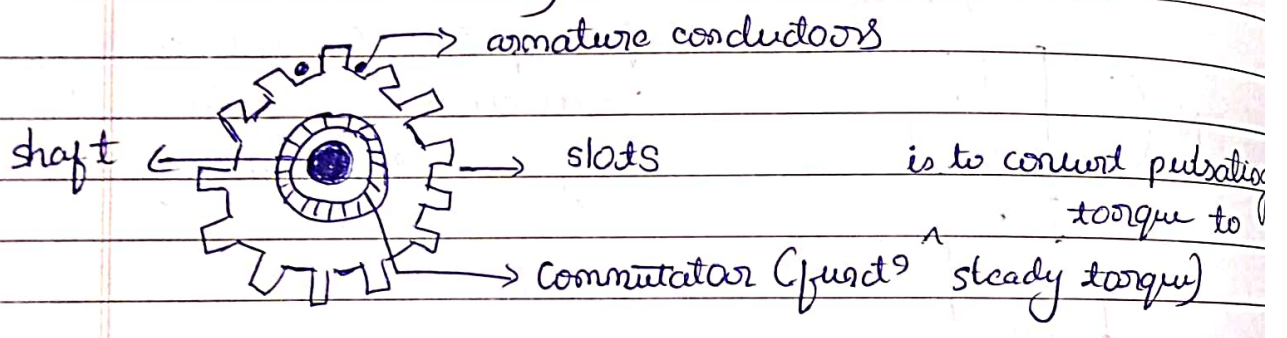 armature conductors
shaft
slots
is to convert pulsatio
torque to
commutator (functⁿ ^ steady torque)